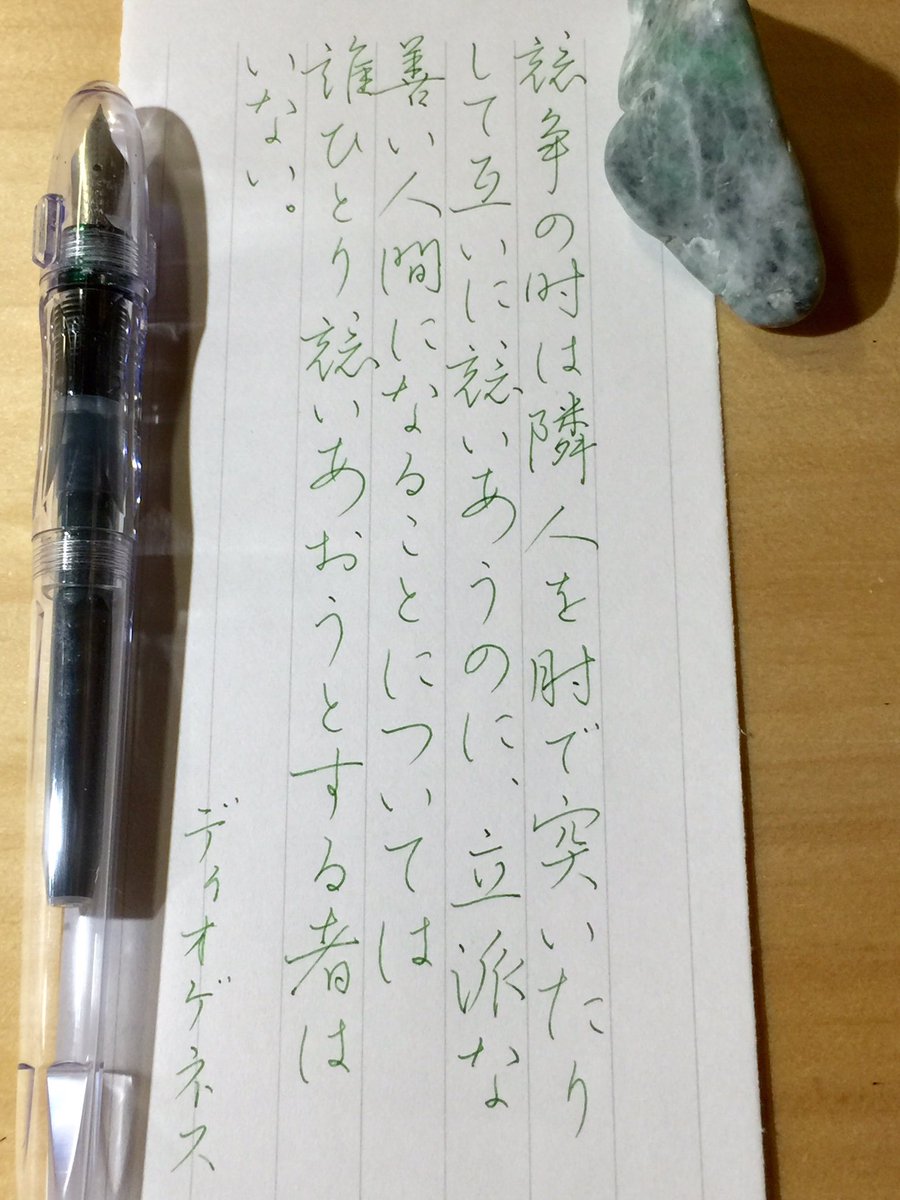 競争の時は隣人を肘で突いたり
して互いに競いあうのに、立派な
善い人間になることについては
誰ひとり競いあおうとする者は
いない。
ディオゲネス